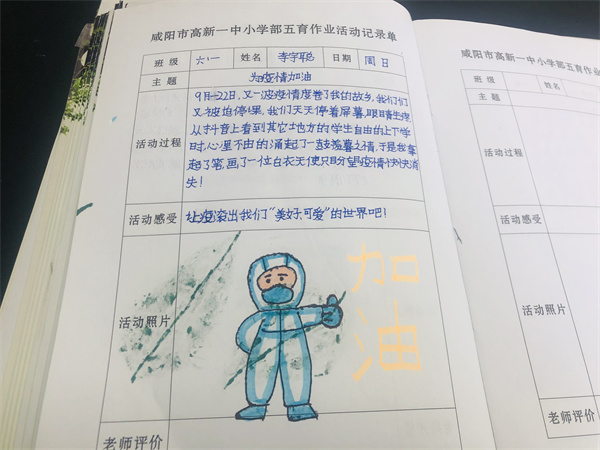 咸阳市高新一中小学部五育作业活动记录单
班 级 六·一 姓名 李宇聪 日期 周日
主 题 为疫情加油
活动过程
9月22日,又一波疫情席卷了我的故乡,我们们
又被迫停课,我们天天停着屏幕,眼睛生疼
从抖音上看到其它地方的学生自由的上下学
时,心里不由的涌起了一鼓羡慕之情,于是我拿
起了笔,画了一位白衣天使,只盼望疫情快快消
失!
活动感受 让疫滚出我们“美好可爱”的世界吧!
活动照片
加
油
老师评价
咸阳市高新一中小学部五育作业
班 级
主 题
活动过程
活动感受
活动照片
老师评价